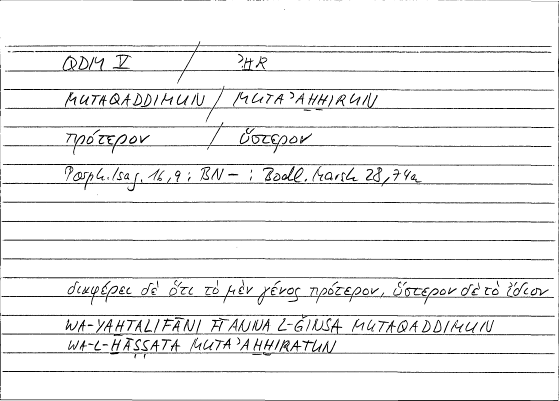 QDM V / ʾḪR
MUTAQADDIMUN / MUTAʾAḪḪIRUN
πρότερον / ὕστερον
Porph. Isag. 16,9 ; BN – ; Bodl. Marsh 28,74a
διαφέρει δὲ ὅτι τὸ μὲν γένος πρότερον, ὕστερον δὲ τὸ ἴδιον
WA-YAḪTALIFĀNI FĪ ANNA L-ǦINSA MUTAQADDIMUN
WA-L-ḪĀṢṢATA MUTAʾAḪḪIRATUN